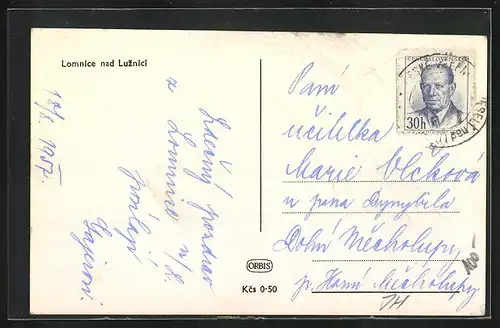 Lomnice nad Lužnicí
18/8. 1957.
Zdravý pozdrav
z Lomnice n/L.
posílají
ČESKOSLOVENSKO
30h
Paní
učitelka
Marie Vlcková
u pana
Dolní Měcholupy,
p. Horní Měcholupy
100-
JH
ORBIS
Kčs 0·50